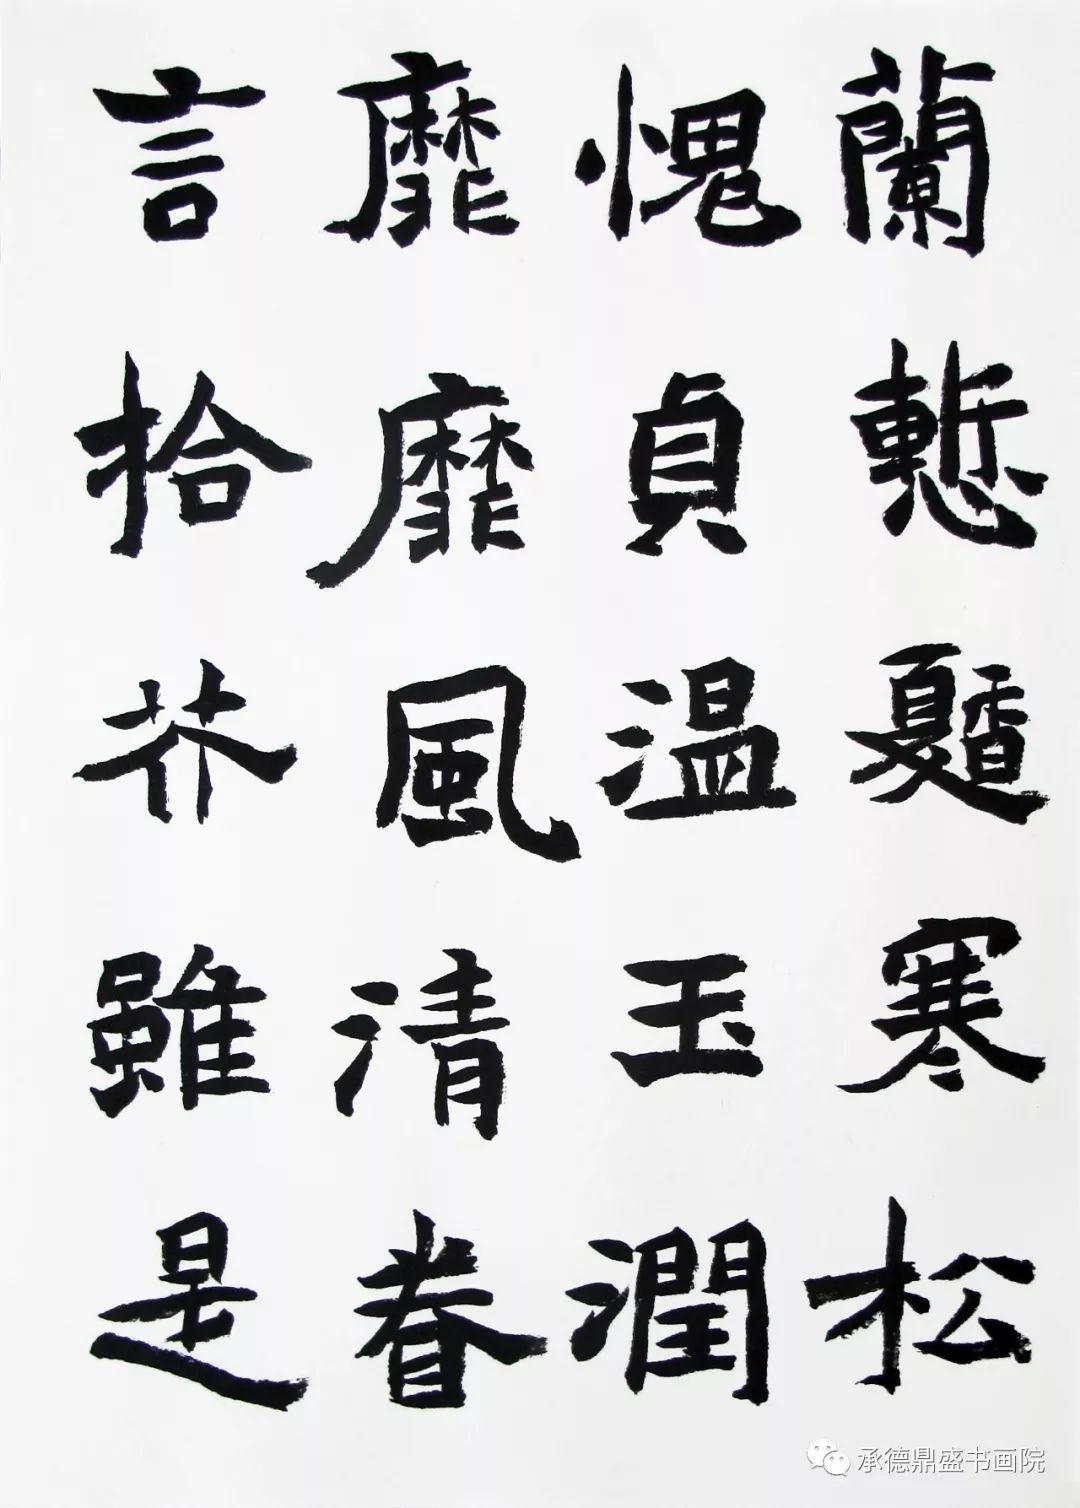 蘭慙馥寒松
愧貞温玉潤
靡靡風清眷
言拾芥雖是
承德鼎盛书画院